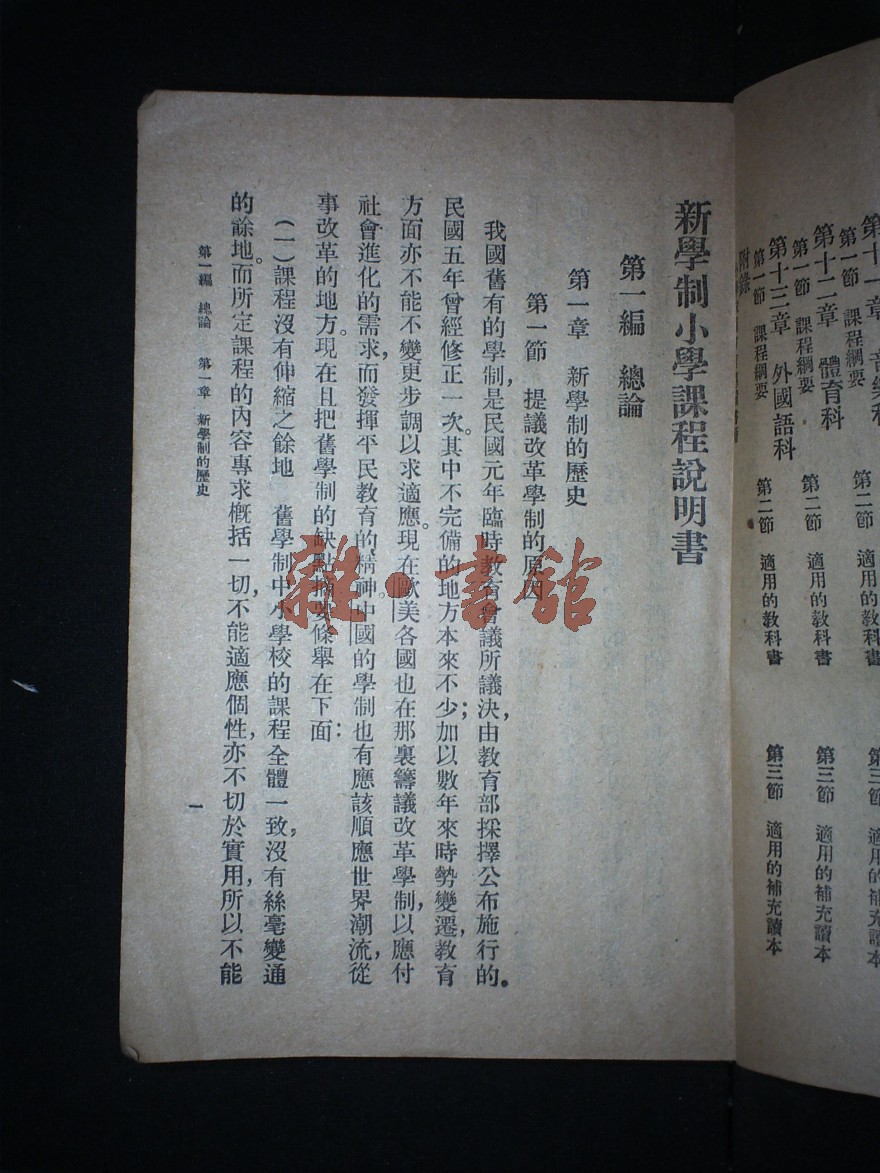 第十一章 音樂科
第一節 課程綱要 第二節 適用的教科書 第三節 適用的補充讀本
第十二章 體育科
第一節 課程綱要 第二節 適用的教科書 第三節 適用的補充讀本
第十三章 外國語科
第一節 課程綱要 第二節 適用的教科書 第三節 適用的補充讀本
附錄
新學制小學課程說明書
第一編 總論
第一章 新學制的歷史
第一節 提議改革學制的原因
我國舊有的學制,是民國元年臨時教育會議所議決,由教育部採擇公布施行的。
民國五年曾經修正一次。其中不完備的地方本來不少;加以數年來時勢變遷,教育
方面亦不能不變更步調以求適應。現在歐美各國也在那裏籌議改革學制,以應付
社會進化的需求,而發揮平民教育的精神,中國的學制也有應該順應世界潮流,從
事改革的地方。現在且把舊學制的缺點摘要條舉在下面:
(一)課程沒有伸縮之餘地 舊學制中小學校的課程全體一致,沒有絲毫變通
的餘地。而所定課程的內容專求概括一切,不能適應個性,亦不切於實用,所以不能
第一編 總論 第一章 新學制的歷史
一
雜·書館